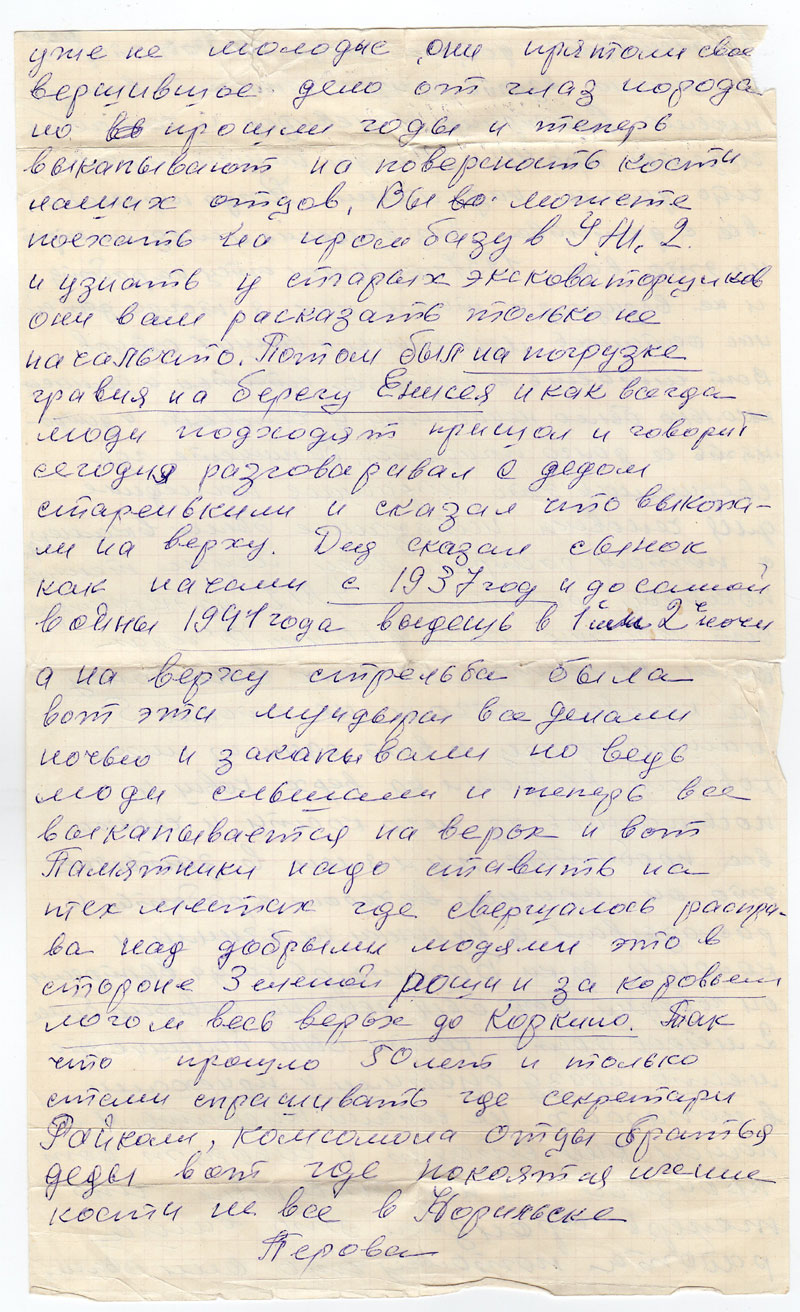 уже не молодые они прятоли свое
вершившое дело от глаз народа
но прошли годы и теперь
выкапывают на поверсность кости
наших отцов. Вы можете
поехать на пром базу в
и узнать у старых эксковаторщиков
они вам расказать только не
начальто. Потом был на погрузке
гравия на берегу Енисея и как всегда
люди подходят пришол и говорит
сегодня разговаривал с дедом
стареньким и сказал что выкопа-
ли на верху. Дед сказал сынок
как начали с 1937 год и до самой
войны 1941 года выдешь в 1 или 2 ч ночи
а на верху стрельба была
вот эти мундыры все делали
ночью и закапывали но ведь
люди слышали и теперь все
выкапывается на верьх и вот
Памятники надо ставить на
тех местах где свершалось распра-
ва над добрыми людями это в
стороне Зеленой рощи и за коровьем
логом весь верьх до Коркино. Так
что прошло 50 лет и только
стали спрашивать где секретари
Райкома, комсомола отцы братья
деды вот где покоятся ичение
кости не все в Норильске
Перова